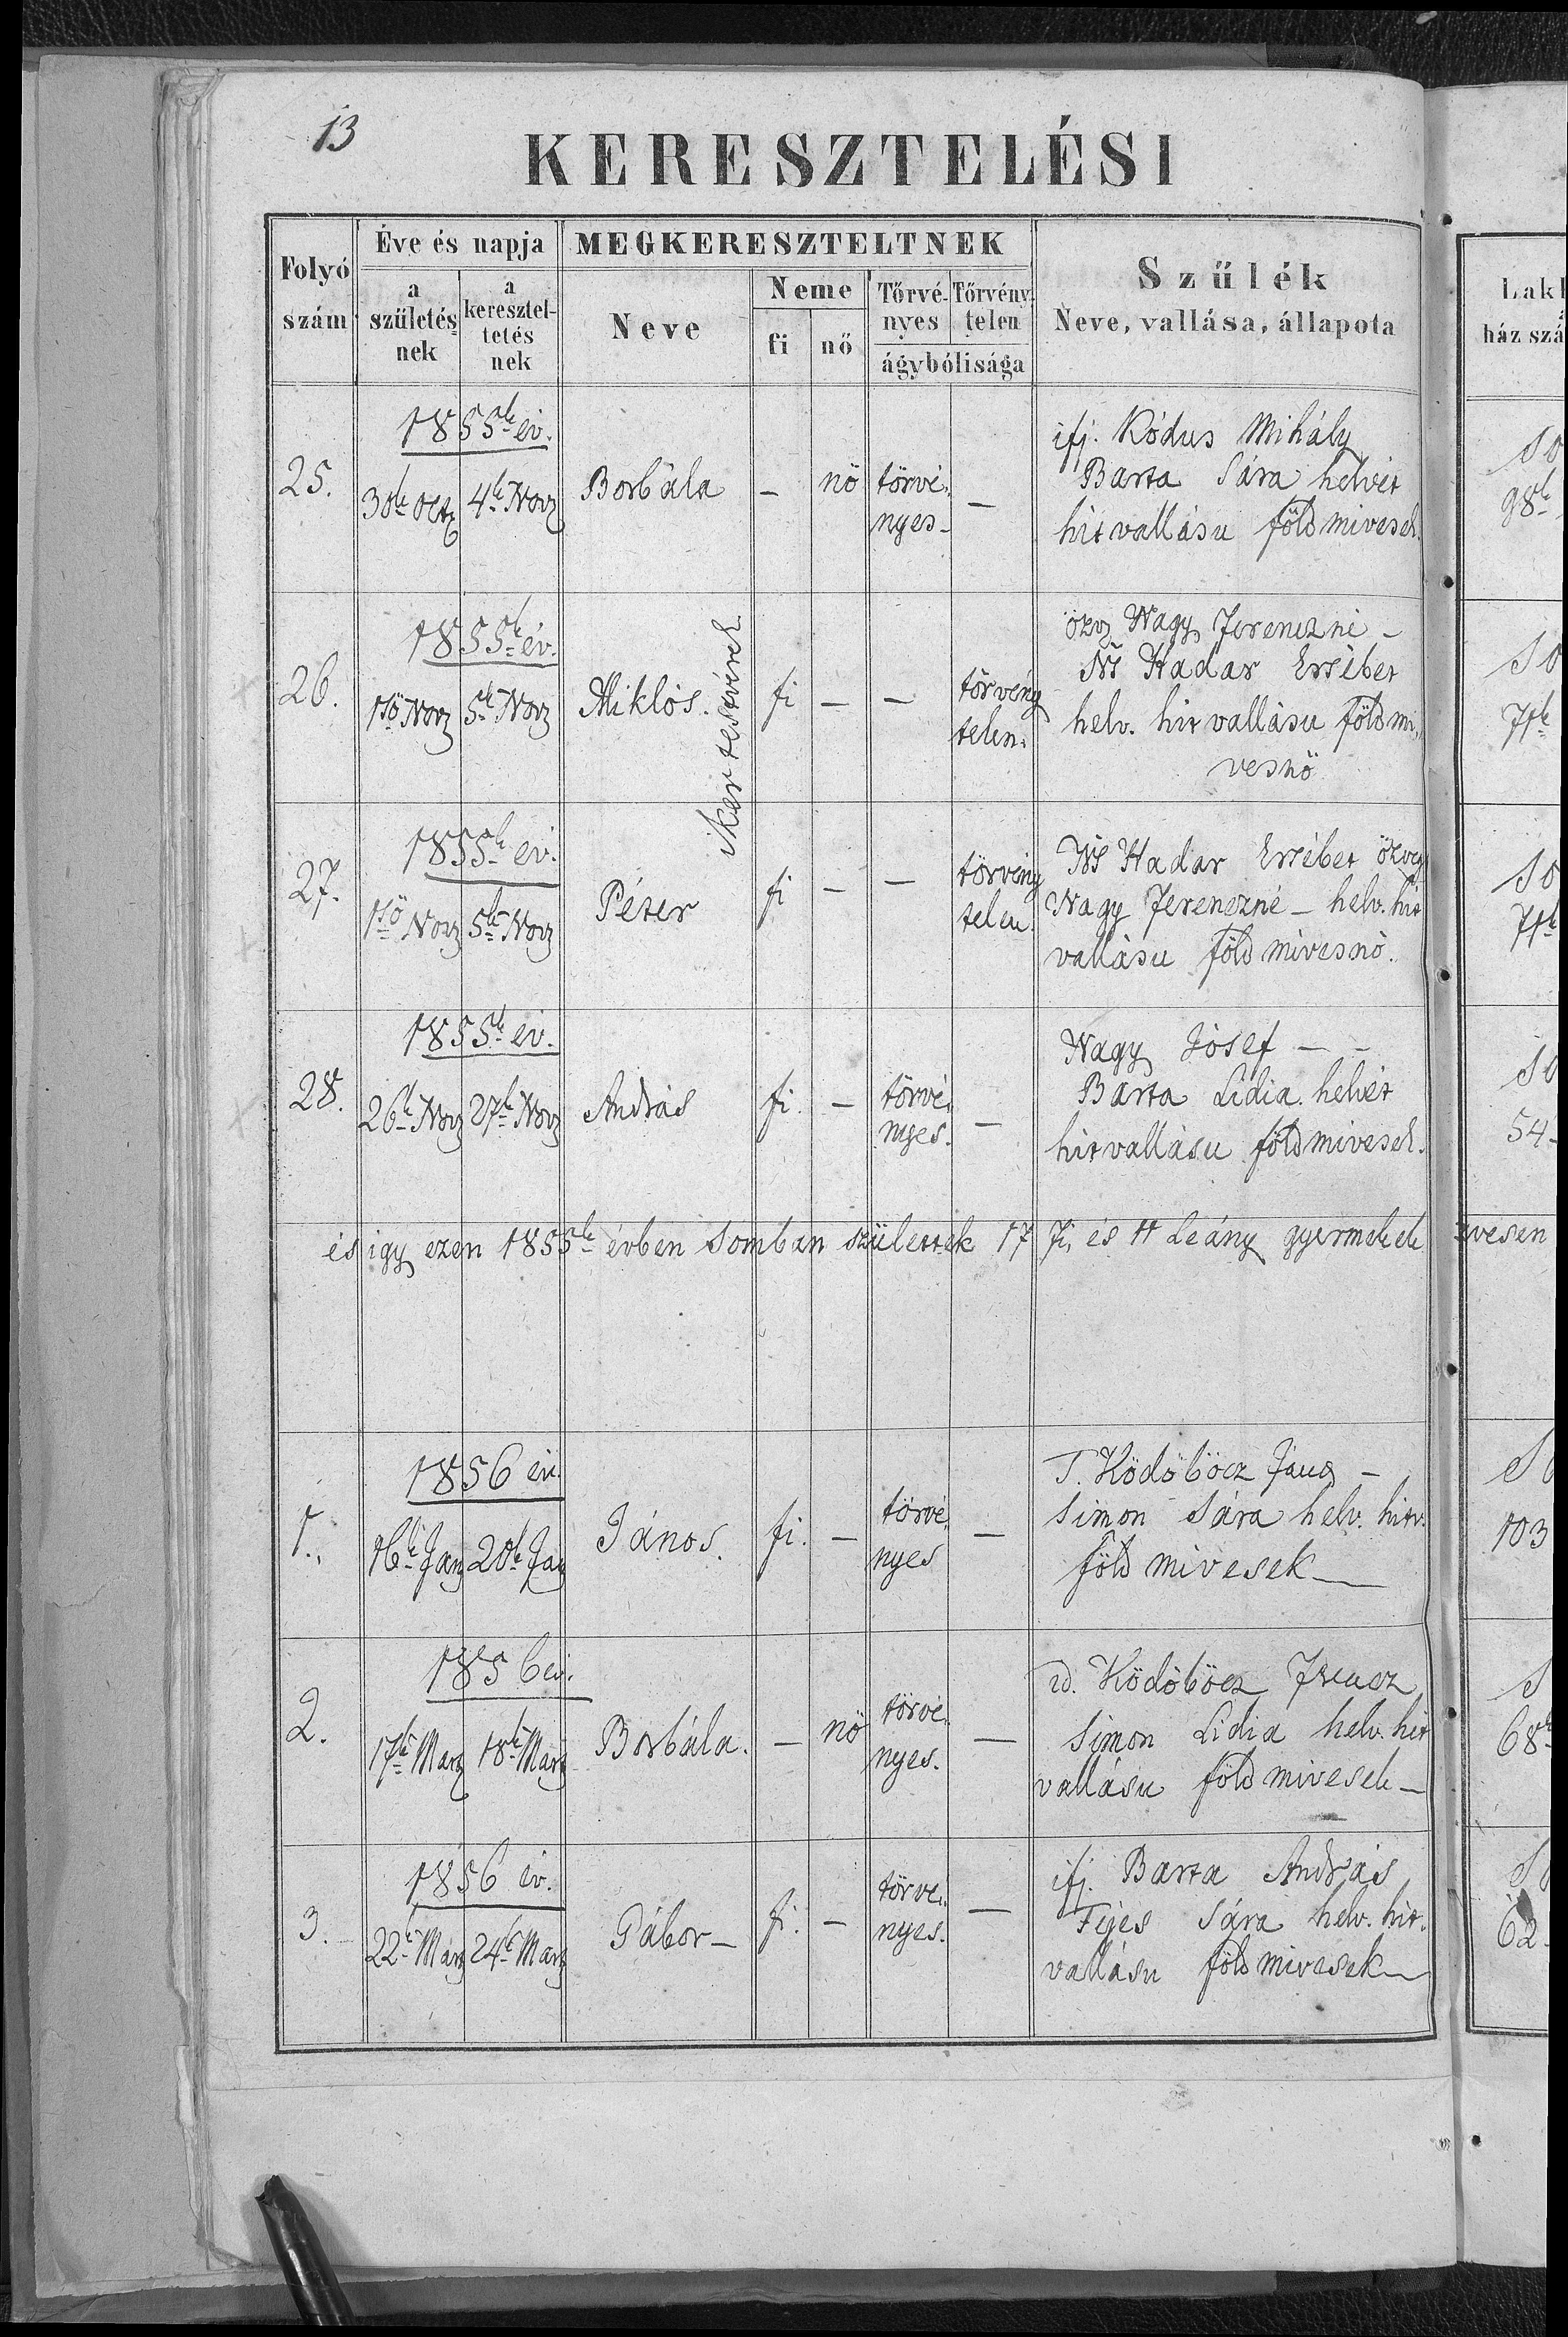 13
KERESZTELÉSI
Folyó szám
Éve és napja
a születés-nek
a keresztel-tetés nek
MEGKERESZTELTNEK
Neve
Neme
fi
nő
Törvé-nyes
Törvény-telen
ágybólisága
Szűlék
Neve, vallása, állapota
Lak
ház szá
1855k év.
25.
30k Octz
4k Novz
Borbála
–
nö
törvé-
nyes-
–
ifj. Kódus Mihály
Barta Sára helvét
hitvallásu földmivesek.
98k
1855k év.
26.
1sö Novz
5k Novz
Miklós.
iker testvérek
fi
–
–
törvény
telen.
özv Nagy Ferenczné –
Ns Hadar Ersébet
helv. hit vallásu földmi-
vesnö
71k
1855k év.
27.
1sö Novz
5k Novz
Péter
fi
–
–
törvény
telen
Ns Hadar Ersébet özvegy
Nagy Ferenczné – helv. hit
vallásu földmivesnö.
71k
1855k év.
28.
26k Novz
27k Novz
András
fi.
–
törvé-
nyes.
–
Nagy Jósef – –
Barta Lidia helvét
hitvallásu földmivesek.
54-
és igy ezen 1855k évben Somban születtek 17 fi, és 11 Leány gyermekek
1856 év.
1.
16k Janz
20k Janz
János.
fi.
–
törvé-
nyes
–
T. Ködöböcz János –
Simon Sára helv. hitv.
földmivesek —
103
1856 év.
2.
17k Marz
18k Marz
Borbála.
–
nö
törvé-
nyes.
—
id. Ködöböcz Ferencz
Simon Lidia helv. hit
vallásu földmivesek –
68k
1856 év.
3.
22k Marz
24k Marz
Gábor –
fi.
–
törvé-
nyes.
—
ifj. Barta András
Fejes Sára helv. hit.
vallásu földmivesek —
62-